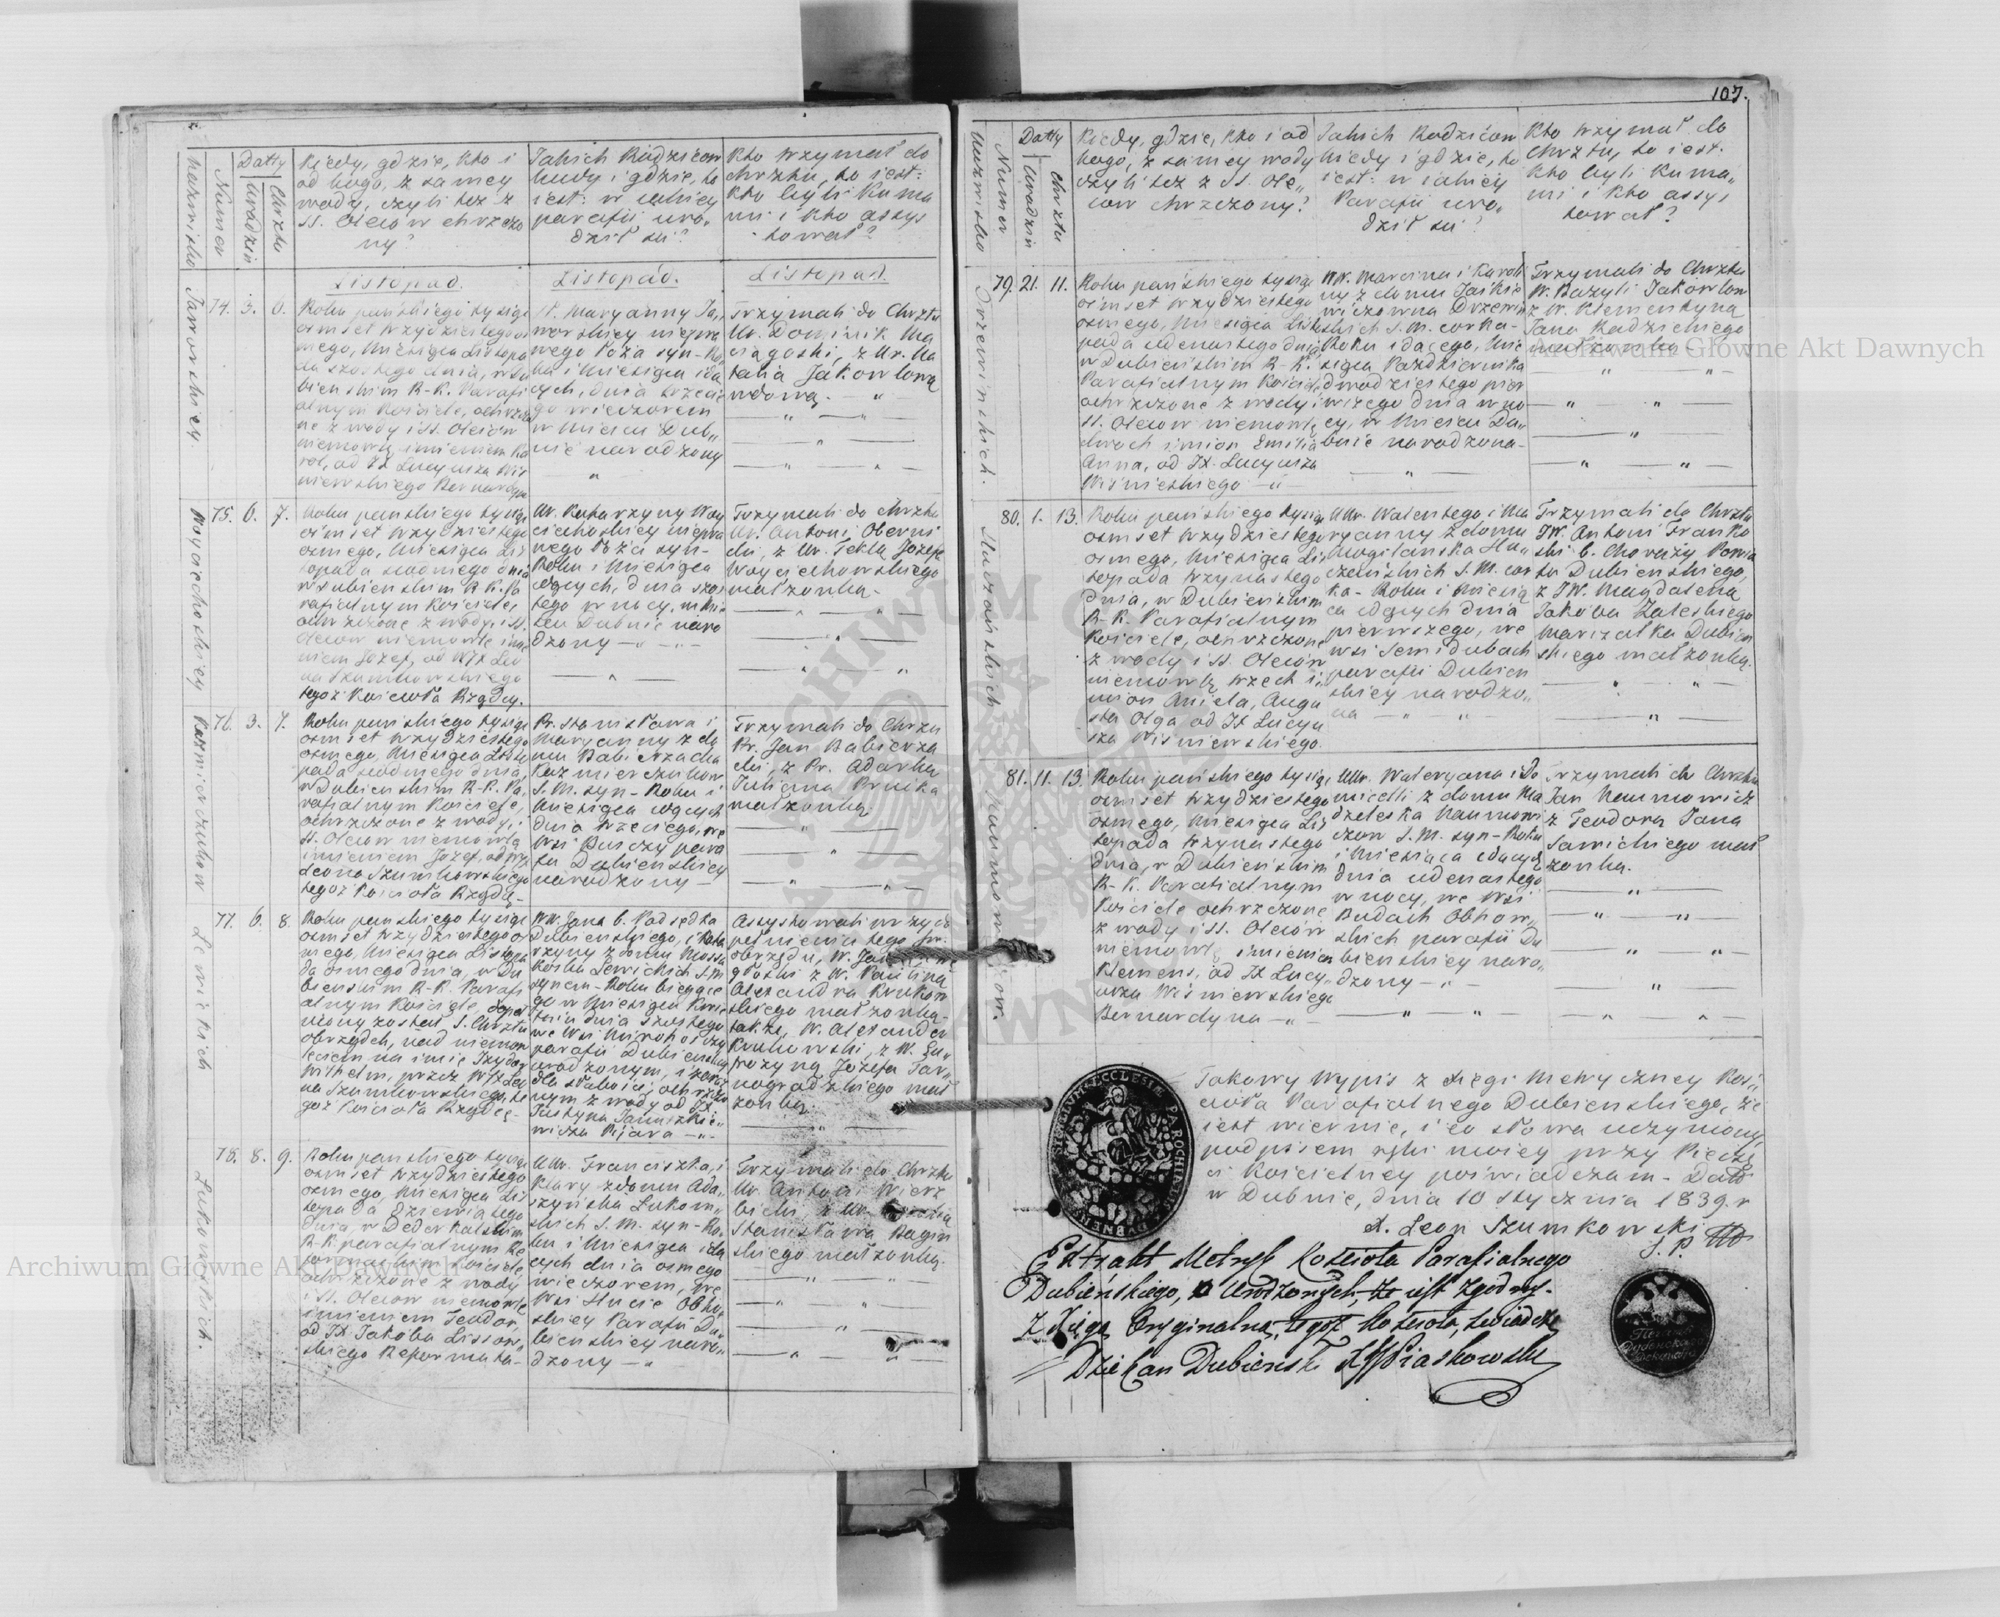 107.
Nazwisko
Numer
Datty
Urodzin
Chrztu
Kiedy, gdzie, kto i
od kogo, z samey
wody, czyli też z
SS. Oleiów chrzczo
ny?
Jakich Rodziców
kiedy i gdzie, to
iest: w iakiey
parafii uro„
dził się?
Kto trzymał do
chrztu, to iest:
kto byli kuma
mi i kto assys
tował?
Listopad.
Listopad.
Listopad.
Jaworskiey.
74. 3. 6.
Roku pańskiego tysiąc
osmset trzydziestego os
mego, Miesiąca Listopa
da szostego dnia, w Du
bienskim R-K. Parafi
alnym Kościele, ochrzczo
ne z wody i SS. Oleiów
niemowlę imieniem Ka
rol, od JX Lucyusza Wiś
niewskiego Bernardyna
Ur. Maryanny Ja„
worskiey niepra
wego łoża syn - Ro
ku i Miesiąca idą
cych, dnia trzecie
go wieczorem
w Mieście Dub„
nie narodzony
Trzymali do Chrztu
Ur. Dominik Ma
ciągoski, z Ur. Na
talią Jakowlową
wdową.
Woyciechoskiey
75. 6. 7.
Roku pańskiego tysiąc
osmset trzydziestego
osmego, Miesiąca Lis
topada siodmego dnia
w Dubienskim R-K. Pa
rafialnym Kościele,
ochrzczone z wody i SS.
Oleiów niemowle imie
niem Jozef, od WJX Leo
na Szumkowskiego
tegoż Kościoła Rządcy.
Ur. Katarzyny Woy
ciechoskiey niepra
wego łoża syn -
Roku i Miesiąca
idących, dnia szos
tego w nocy, w Mie
ście Dubnie naro
dzony
Trzymali do Chrztu
Ur. Antoni Oberni
cki, z Ur. Teklą Jozefa
Woyciechowskiego
małżonką.
Kazmierczuków
76. 3. 7.
Roku pańskiego tysiąc
osmset trzydziestego
osmego, Miesiąca Listo
pada siodmego dnia,
w Dubienskim R-K. Pa
rafialnym Kościele,
ochrzczone z wody i
SS. Oleiów niemowle
imieniem Jozef, od WJX
Leona Szumkowskiego
tegoż Kościoła Rządcę-
Pr. Stanisława i
Maryanny z do
mu Babierzacka
Kazmierczuków
S. M. syn - Roku i
Miesiąca idących
dnia trzeciego, we
Wsi Puszczy para
fii Dubienskiey
narodzony
Trzymali do Chrztu
Pr. Jan Babierza
cki, z Pr. Adarką
Juliana Prnika
małżonką.
Lewickich
77. 6. 8.
Roku pańskiego tysiąc
osmset trzydziestego os
mego, Miesiąca Listopa
da osmego dnia, w Du
bienskim R-K. Parafi
alnym Kościele, dopeł
niony został S. Chrztu
obrzęd, nad niemow
lęciem na imie Izydor
Wilhelm, przez WJX Leo
na Szumkowskiego, te
goż Kościoła Rządcę
WW. Jana b. Podsędka
Dubienskiego, i Kata
rzyny z domu Mossa
koska Lewickich S. M.
synem - Roku bieżące
go w Miesiącu Kwie
tniu dnia szostego
we Wsi Mirohoszczy
parafii Dubienskiey
urodzonym, i zaraz
dla słabości, ochrzczo
nym z wody od JX
Justyna Januszkie„
wicza Pijara
Assystowali przy do
pełnieniu tego Sw.
obrzędu, W. Jan
głoski z W. Pauliną
Alexandra Krukow
skiego małżonką-
także, W. Alexander
Krukowski, z W. Eu„
frozyną Jozefa Tar„
nogradzkiego mał
żonką.
Łukomskich.
78. 8. 9.
Roku pańskiego tysiąc
osmset trzydziestego
osmego, Miesiąca Lis
topada dziewiątego
dnia, w Dederkalskim
R-K parafialnym Re
formackim Kościele,
ochrzczone z wody
i SS. Oleiów niemowle
imieniem Teodor,
od JX Jakoba Lissow„
skiego Reformata-
UUr. Franciszka, i
Klary z domu Ada„
szyńska Łukom„
skich S. M. syn - Ro„
ku i Miesiąca idą
cych dnia osmego
wieczorem, we
Wsi Hucie Obho„
skiey Parafii Du„
bienskiey naro„
dzony
Trzymali do Chrztu
Ur. Antoni Wierz
bicki, z Ur.
Stanisława Bagin
skiego małżonką.
Nazwisko
Numer
Datty
Urodzin
Chrztu
Kiedy, gdzie, kto i od
kogo, z samey wody
czyli też z SS. Ole„
iów chrzczony?
Jakich Rodziców
kiedy i gdzie, to
iest: w iakiey
Parafii uro„
dził się?
Kto trzymał do
Chrztu, to iest:
kto byli kuma„
mi i kto assys
tował?
Drzewinskich.
79. 21. 11.
Roku pańskiego tysiąc
osmset trzydziestego
osmego, Miesiąca Listo
pada iedenastego dnia
w Dubieńskim R-K.
Parafialnym Kościele,
ochrzczone z wody i
SS. Oleiów niemowlę
dwoch imion Emilia
Anna, od JX. Lucyusza
Wiśnieskiego
WW. Marcina i Karoli
ny z domu Jaśkie
wiczowna Drzewiń
skich S. M. corka -
Roku idącego, Mie
siąca Października
dwadziestego pier
wszego dnia w no
cy, w Mieście Du„
bnie narodzona-
Trzymali do Chrztu
W. Bazyli Jakowlow
z W. Klementyną
Jana Radzickiego
małżonką
Huczoskich
80. 1. 13.
Roku pańskiego tysiąc
osmset trzydziestego
osmego, Miesiąca Lis
topada trzynastego
dnia, w Dubienskim
R-K. Parafialnym
Kościele, ochrzczone
z wody i SS. Oleiów
niemowlę trzech i„
mion Aniela, Augu
sta Olga od JX Lucyu
sza Wiśniewskiego.
UUr. Walentego i Ma
ryanny z domu
Mogilanska Hu„
czowskich S. M. cor
ka - Roku i Miesią
ca idących dnia
pierwszego, we
wsi Semidubach
parafii Dubien
skiey narodzo„
na
Trzymali do Chrztu
JW. Antoni Franko
ski b. Chorąży Powia
tu Dubienskiego,
z JW. Magdaleną
Jakoba Zaleskiego
Marszałka Dubien
skiego małżonką.
Naumowiczow.
81. 11. 13.
Roku pańskiego tysiąc
osmset trzydziestego
osmego, Miesiąca Lis
topada trzynastego
dnia, w Dubienskim
R-K. Parafialnym
Kościele ochrzczone
z wody i SS. Oleiów
niemowle imieniem
Klemens, od JX Lucy„
usza Wiśniewskiego
Bernardyna
UUr. Waleryana i Do
micelli z domu Ma
dzeleska Naumowi
czow S. M. syn - Roku
i Miesiąca idących
dnia iedenastego
w nocy, we Wsi
Budach Obhow„
skich parafii Du
bienskiey naro„
dzony
Trzymali do Chrztu
Jan Naumowicz
z Teodorą Jana
Sawickiego mał
żonką.
SIGILLUM ECCLESIÆ PAROCHIALIS DUBNENSIS
Takowy Wypis z Xięgi Metryczney Koś„
cioła Parafialnego Dubienskiego, że
iest wiernie, i co słowa uczyniony,
podpisem ręki moiey przy Pieczę
ci Kościelney poświadczam - Dato
w Dubnie, dnia 10 stycznia 1839. r
X. Leon Szumkowski
Extrakt Metryk Kościoła Parafialnego
Dubieńskiego, o Urodzonych, że jest Zgodny
Z Xięgą Oryginalną, tegoż Kościoła, świadczę
Dziekan Dubieński X Piaskowski
Archiwum Główne Akt Dawnych
Archiwum Główne Akt Dawnych